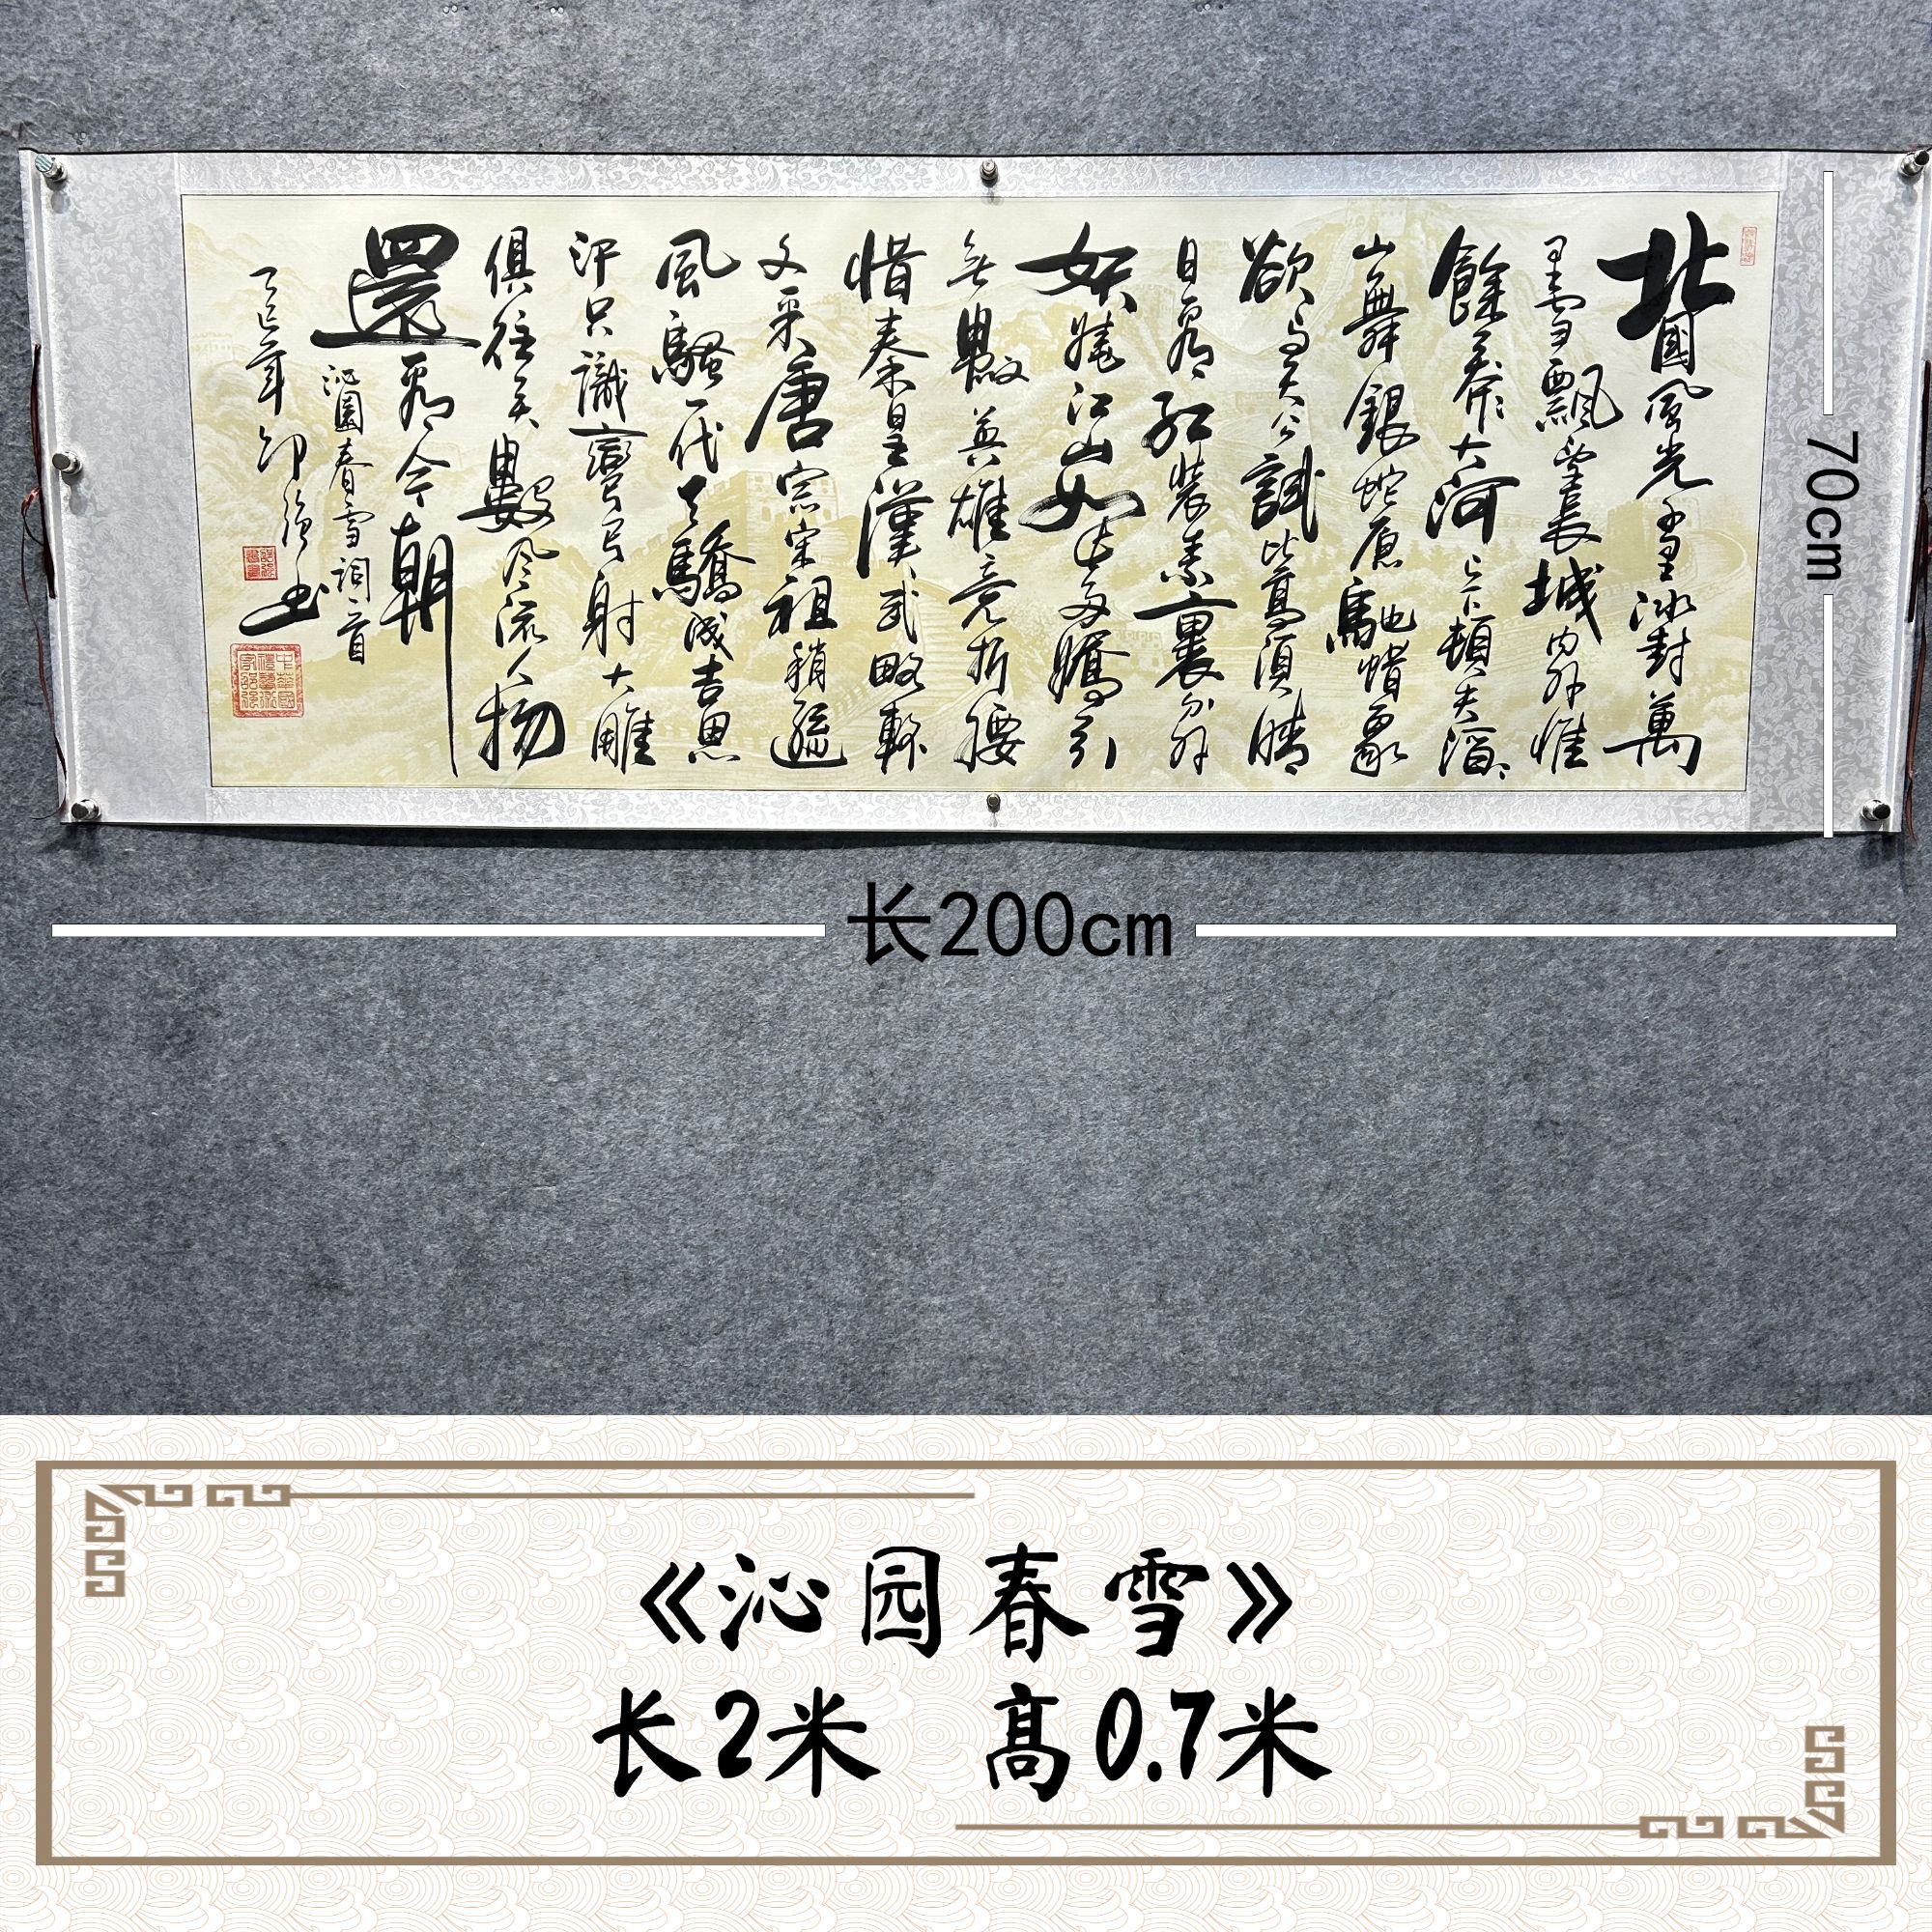 北國風光千里冰封萬
里雪飄望長城內外惟
餘莽莽大河上下頓失滔滔
山舞銀蛇原馳蠟象
欲与天公試比高須晴
日看紅裝素裹分外
妖嬈江山如此多嬌引
無數英雄競折腰
惜秦皇漢武略輸
文采唐宗宋祖稍遜
風騷一代天驕成吉思
汗只識彎弓射大雕
俱往矣數風流人物
還看今朝
沁園春雪詞一首
乙巳年
70cm
长200cm
《沁园春雪》
长2米 高0.7米